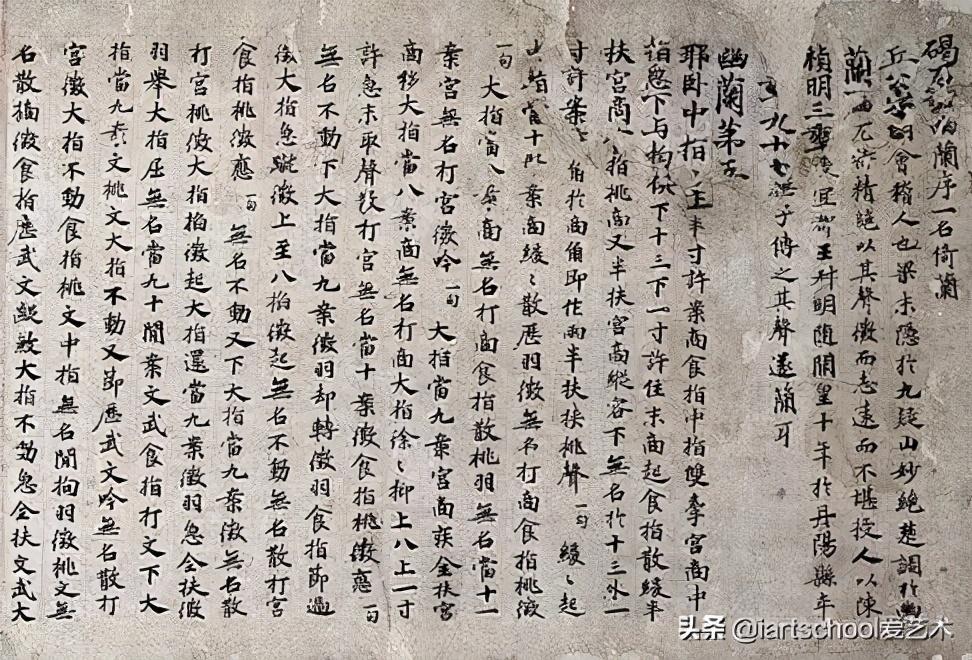 碣石調幽蘭序一名倚蘭
丘公字明會稽人也梁末隱於九疑山妙絕楚調於幽
蘭一曲尤精絕以其聲微而志遠而不堪授人以陳
禎明三年授宜都王叔明隨開皇十年於丹陽縣卒
年九十七無子傳之其聲遂簡耳
幽蘭第五
耶臥中指半寸許案商食指中指雙牽宮商中
指急下与拘俱下十三下一寸許住末商起食指散緩半
扶宮商食指挑商又半扶宮商縱容下無名於十三外一
寸許案商角於商角即作兩半扶挾挑聲一句 緩〻起
無名當十 案商緩〻散歷羽徵無名打商食指挑徵
一句 大指當八案商無名打商食指散挑羽無名當十一
案宮無名打宮徵吟一句 大指當九案宮商疾全扶宮
商移大指當八案商無名打商大指徐〻抑上八上一寸
許急末取聲散打宮無名當十案徵食指挑徵應一句
無名不動下大指當九案徵羽却轉徵羽食指節過
徵大指急蹴徵上至八拍徵起無名不動無名散打宮
食指挑徵應一句 無名不動又下大指當九案徵無名散
打宮挑徵大指掐徵起大指還當九案徵羽急全扶徵
羽舉大指屈無名當九十間案文武食指打文下大
指當九案文挑文大指不動又節歷武文吟無名散打
宮徵大指不動食指挑文中指無名間拘羽徵挑文無
名散摘徵食指歷武文蹴 大指不動急全扶文武大
头条 @iartschool爱艺术